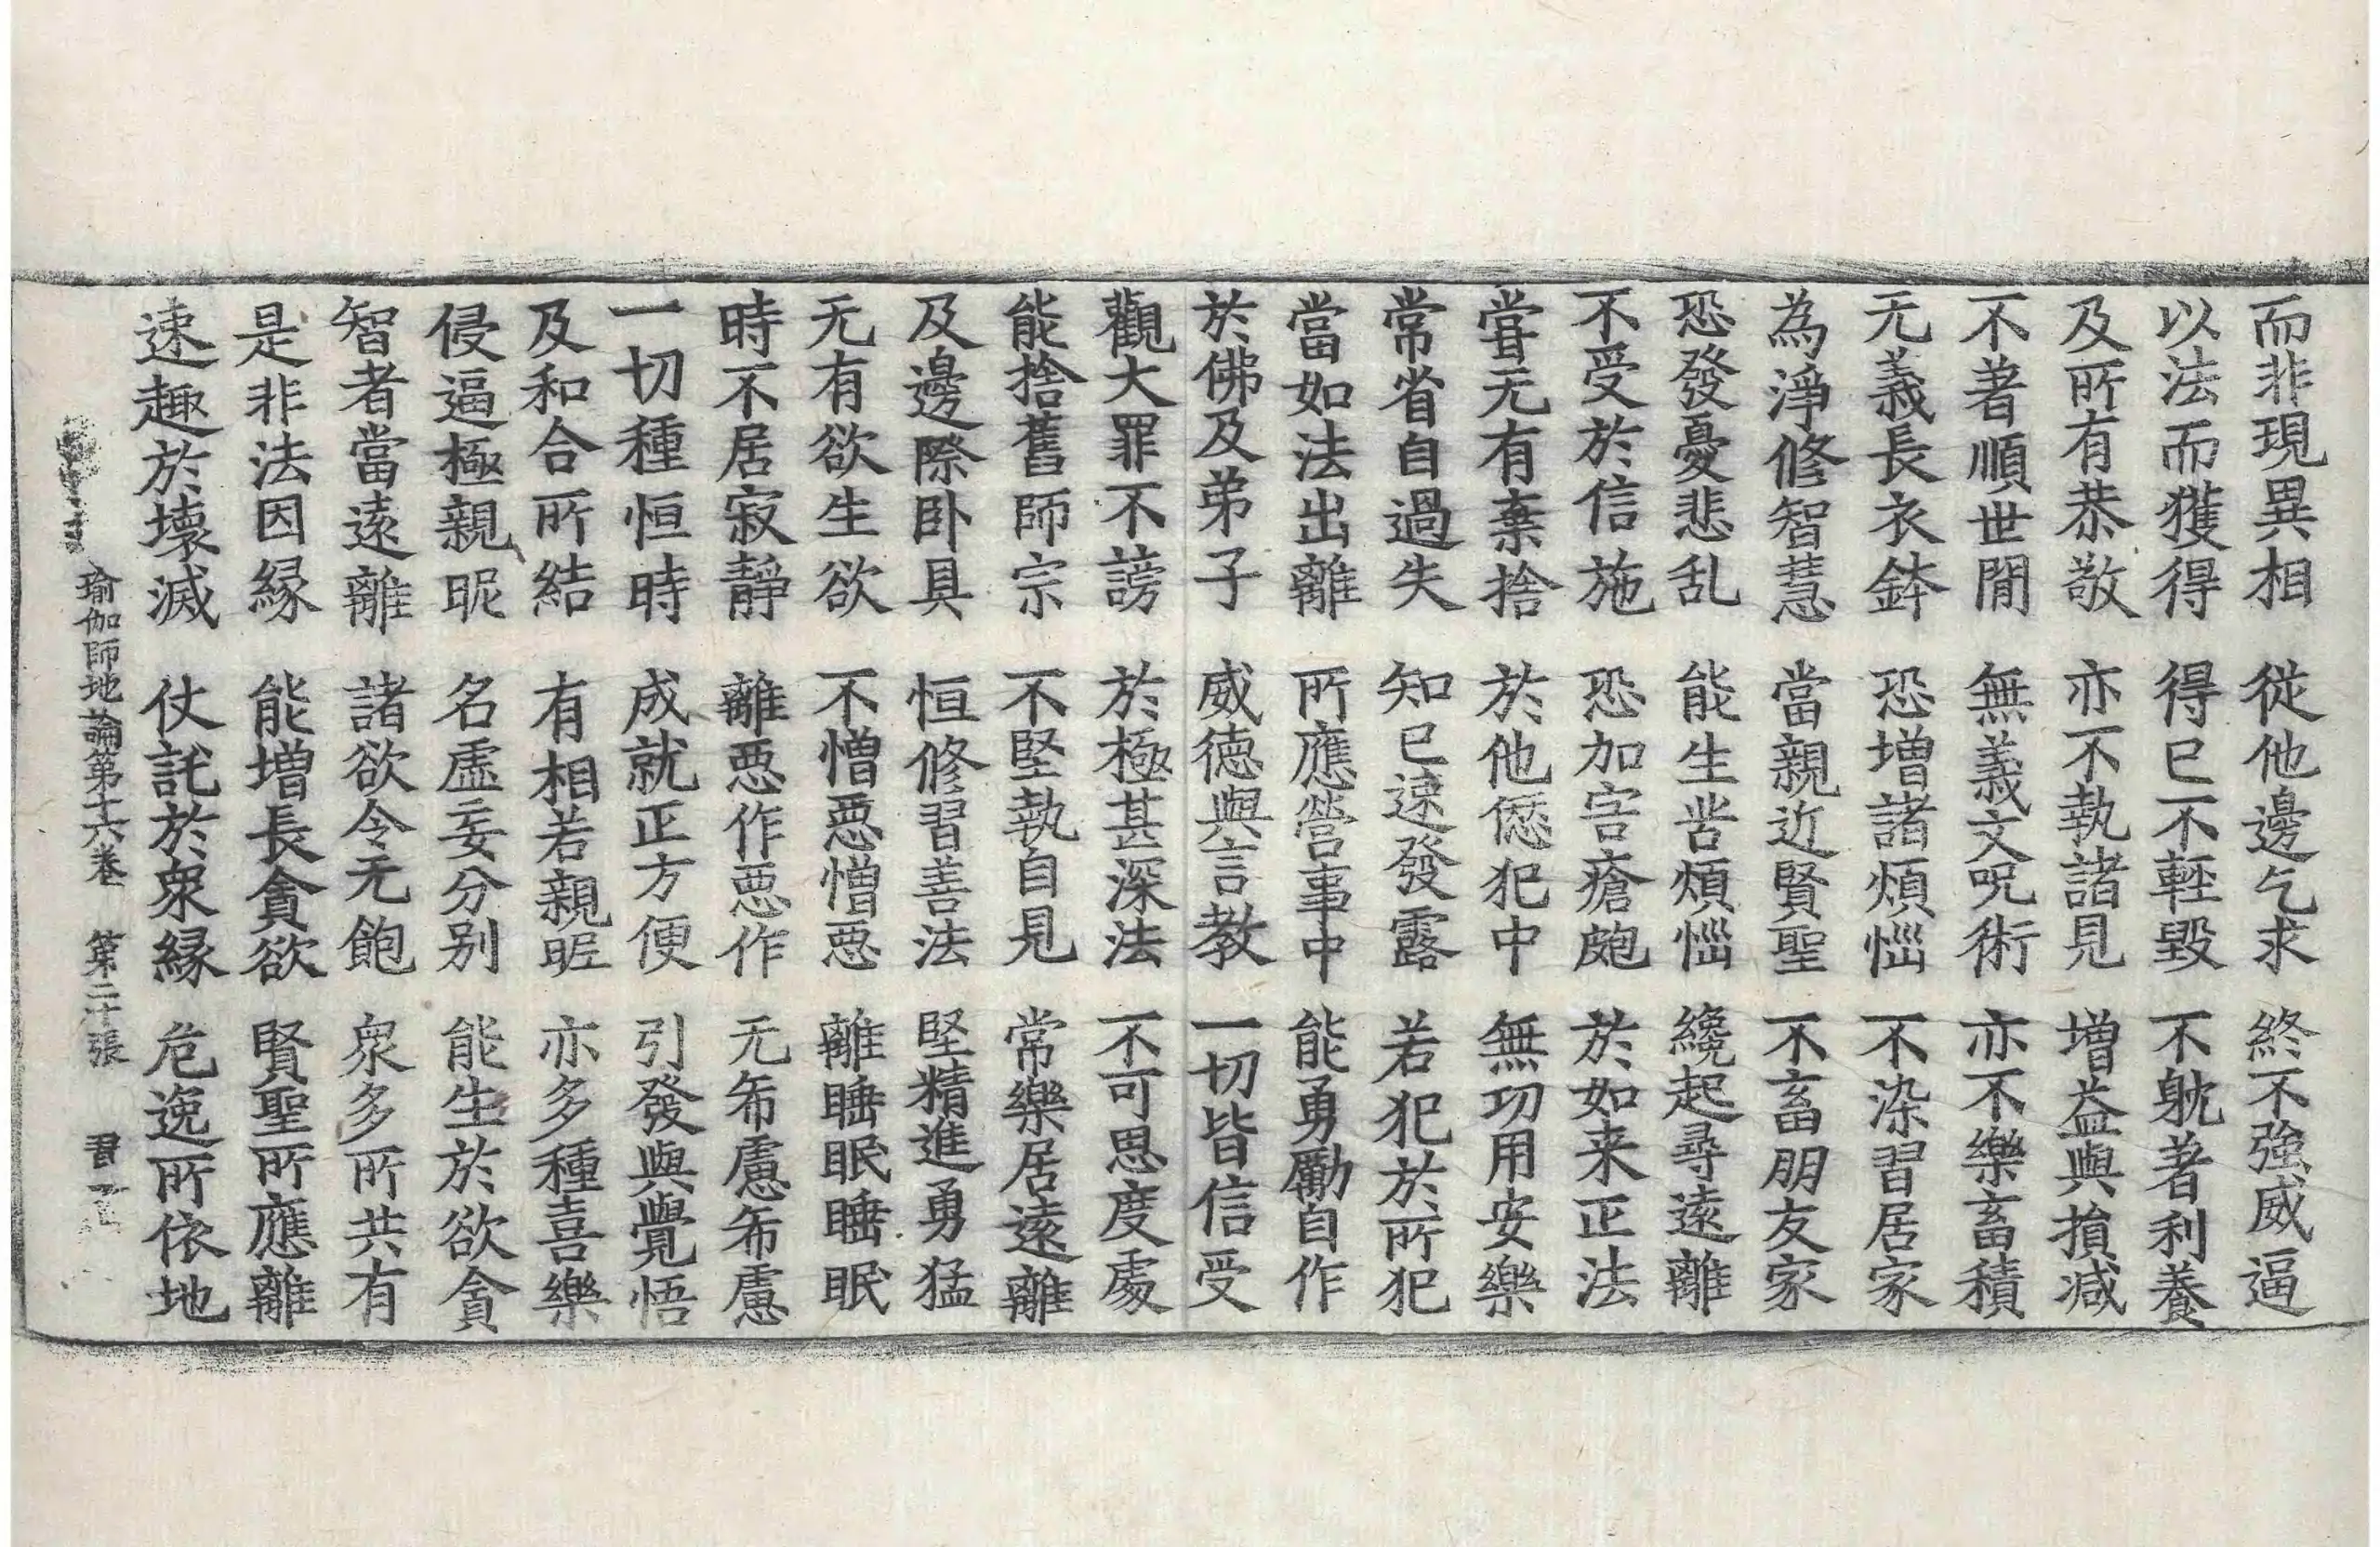 而非現異相　從他邊乞求　終不強威逼
以法而獲得　得已不輕毀　不躭著利養
及所有恭敬　亦不執諸見　增益與損減
不著順世閒　無義文呪術　亦不樂畜積
无義長衣鉢　恐增諸煩惱　不染習居家
為淨修智慧　當親近賢聖　不畜朋友家
恐發憂悲乱　能生苦煩惱　纔起尋遠離
不受於信施　恐加害瘡皰　於如来正法
甞无有棄捨　於他𠍴犯中　無功用安樂
常省自過失　知已速發露　若犯於所犯
當如法出離　所應營事中　能勇勵自作
於佛及弟子　威德與言教　一切皆信受
觀大罪不謗　於極甚深法　不可思度處
能捨舊師宗　不堅執自見　常樂居遠離
及邊際卧具　恒修習善法　堅精進勇猛
无有欲生欲　不憎悪憎悪　離睡眠睡眠
時不居寂靜　離悪作悪作　无希慮希慮
一切種恒時　成就正方便　引發與覺悟
及和合所結　有相若親昵　亦多種喜樂
侵逼極親昵　名虛妄分別　能生於欲貪
智者當遠離　諸欲令无飽　衆多所共有
是非法因緣　能增長貪欲　賢聖所應離
速趣於壞滅　仗託於衆緣　危逸所依地
瑜伽師地論第十六卷　第二十張